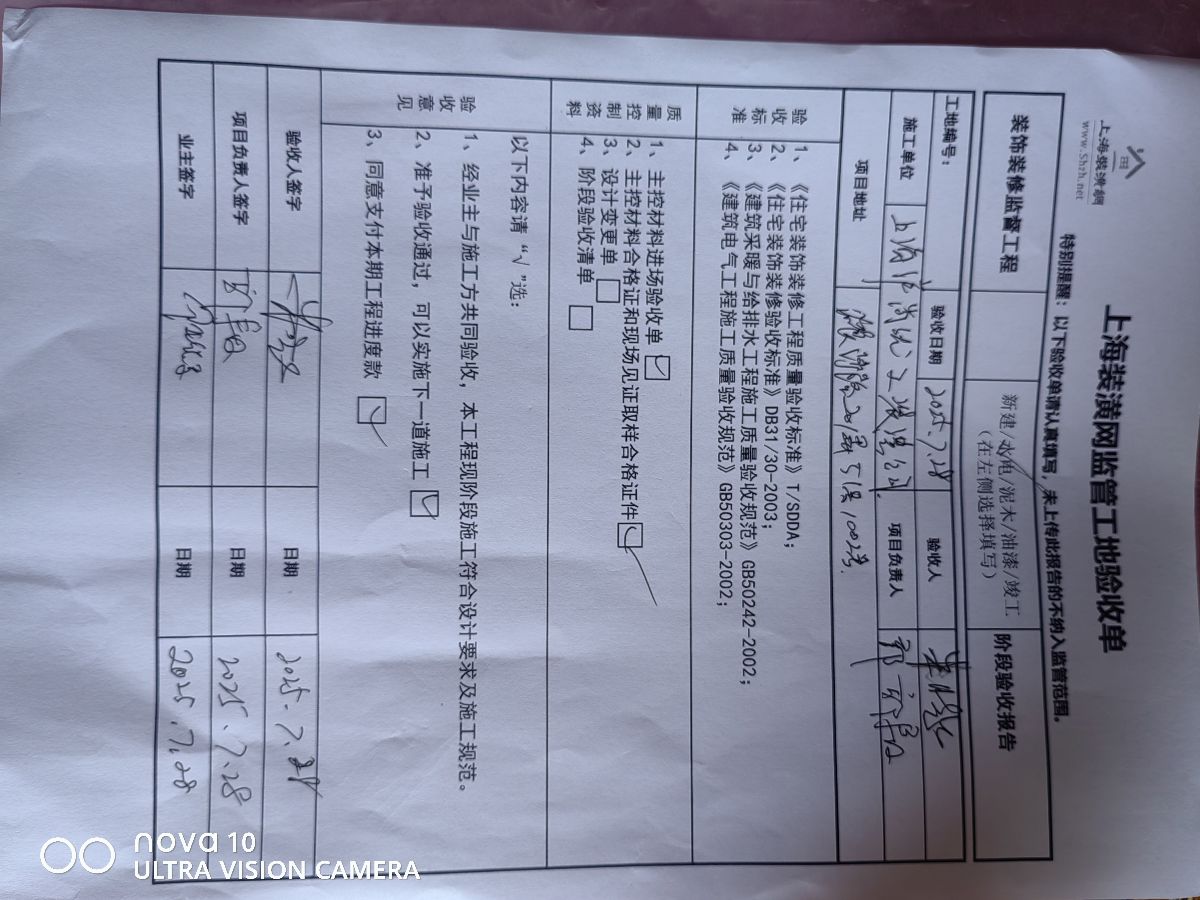 上海装潢網
www.Shzh.net
上海装潢网监管工地验收单
特别提醒：以下验收单请认真填写，未上传此报告的不纳入监管范围。
装饰装修监督工程
新建/水电/泥木/油漆/竣工
（在左侧选择填写）
阶段验收报告
工地编号：
验收日期
2025.7.28
验收人
施工单位
项目负责人
项目地址
验收标准
1、《住宅装饰装修工程质量验收标准》T/SDDA；
2、《住宅装饰装修验收标准》DB31/30-2003；
3、《建筑采暖与给排水工程施工质量验收规范》GB50242-2002；
4、《建筑电气工程施工质量验收规范》GB50303-2002；
质量控制资料
1、主控材料进场验收单 ☑
2、主控材料合格证和现场见证取样合格证件 ☑
3、设计变更单 □
4、阶段验收清单 □
以下内容请“√”选：
验收意见
1、经业主与施工方共同验收，本工程现阶段施工符合设计要求及施工规范。
2、准予验收通过，可以实施下一道施工 ☑
3、同意支付本期工程进度款 ☑
验收人签字
日期
2025.7.28
项目负责人签字
日期
2025.7.28
业主签字
日期
2025.7.28
nova 10
ULTRA VISION CAMERA